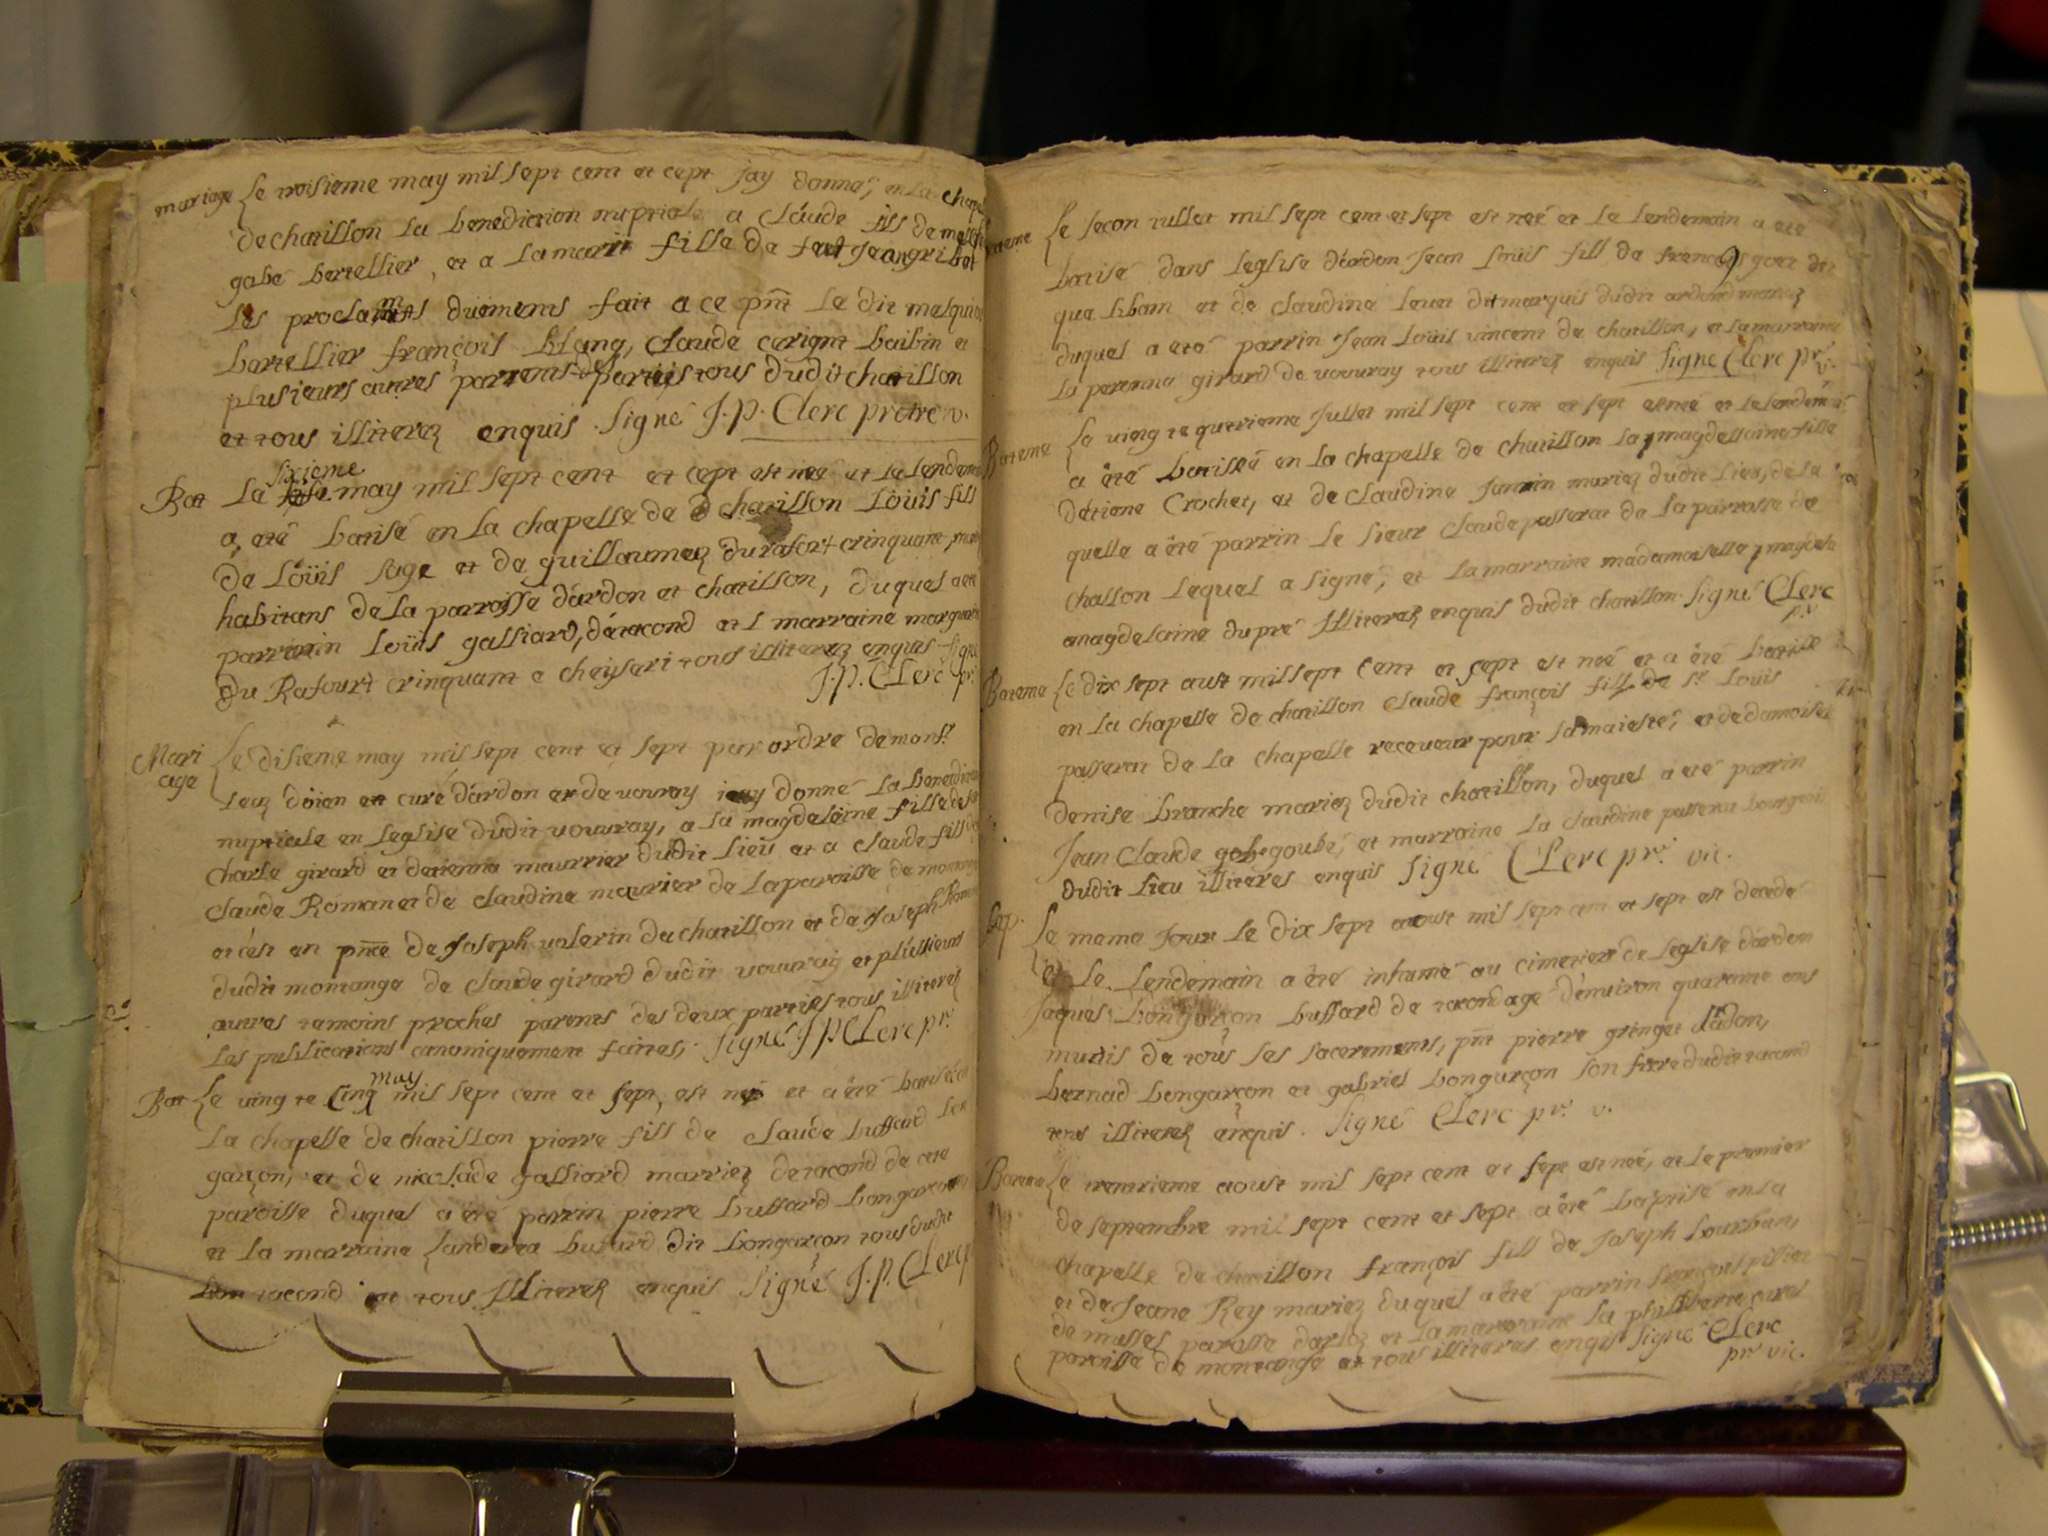 mariage Le troisieme may mil sept cent et cept jay donné, en la chapel
de chatillon la benediction nuptiale a Claude fill de melch
gabé bertellier, et a la marie fille de feu Jean gribet
les proclamats duements fait a ce pnt le dit melquior
bertellier françois blanq, Claude balbin et
plusieurs autres parrens des partiés tous dudit chatillon
et tous illiterez enquis. Signé J. P. Clerc pretre v.
Bat Le sixieme may mil sept cent et cept est neé et le lendemain
a eté batisé en la chapelle de chatillon Loüis fill
de Loüis Juge et de guillaumez durafort crinquant
habitans de la parroisse d'ardon et chatillon, duquel a eté
parrin loüis galliard, détacond et l marraine margueri
du Rafourt crinquant e cheiseri tous illiterez enquis signé
J. P. Clerc pr.
Mari
age Le disieme may mil sept cent et sept par ordre de monsr
Leaz döien et curé d'ardon et de vouvray jay donné la benediction
nuptiale en leglise dudit vouvray, a la magdeleine fille de
Charle girard et detienna meurrier dudit lieu et a Claude fill de
Claude Roman et de claudine meurier de laparoisse de montange
et c'est en pnce de Joseph valerin de chatillon et de Joseph Roman
dudit montange de Claude girard dudit vouvray et plusieurs
autres temoins proches parents des deux partiés tous illiterez
les publications canoniquement faites, Signé J P Clerc pr.
Bat Le vingte cinq may mil sept cent et sept, est neé et a été batisé en
la chapelle de chatillon pierre fill de Claude buffard bon
garçon, et de nicolade galliard marriez detacond de cete
paroisse duquel a été parrin pierre buffard bongarçon
et la marraine landerea bufard dit bongarçon tous dudit
tacond et tous Illiterez enquis Signé J. P. Clerc p
Bateme Le secon iullet mil sept cent et sept est neé et le lendemain a eté
batisé dans leglise dárdon Jean Loüis fill de francois goer dit
que liban et de claudine levet dit marquis dudit ardon mariez
duquel a eté parrin Jean Loüis vincent de chatillon, et la marraine
la perenna girard de vouvray tous illiterez enquis Signé Clerc pr. v.
Bateme La vingte quetrieme Jullet mil sept cent et sept est neé et le lendemain
a été batisée en la chapelle de chatillon la magdellaine fille
détiene Crochet, et de claudine Jannin mariez dudit lieu, de la
quelle a été parrin le sieur Claude passerat de la parrasse de
challon lequel a signé, et la marraine madamoiselle magdela
magdelaine dupré Illiterez enquis dudit chatillon Signé Clerc
p. v.
Bateme Le dix sept aust mil sept cent et sept est neé et a été batisé
en la chapelle de chatillon Claude françois fill de sr Louis
passerat de la chapelle receveur pour sa maiesté, et de damoiselle
denise branche mariez dudit chatillon, duquel a été parrin
Jean Claude gobe goubé, et marraine la claudine passerat bourgeois
dudit lieu illiteres enquis Signé Clerc pr. vic.
Sep. Le meme jour le dix sept aoust mil sept cent et sept est decedé
et le lendemain a été inhumé au cimetiere de leglise d'ardon
Jaques bongarçon buffard de tacond agé d'environ quarante ans
munis de tous les sacerements, pnt pierre gringet d'ardon,
bernad bongarçon et gabriel bongarçon son frere dudit tacond
tous illiterez enquis. Signé Clerc pr. v.
Bateme Le trentieme aoust mil sept cent et sept est neé, et le premier
de septembre mil sept cent et sept a été baptisé en la
chapelle de chatillon françois fill de Joseph bourban,
et de Jeane Rey mariez duquel a été parrin françois pillier
de musset parasse darloz et la marraine la philiberte
paroisse de montange et tous illiteres enqis Signé Clerc
pr vic.